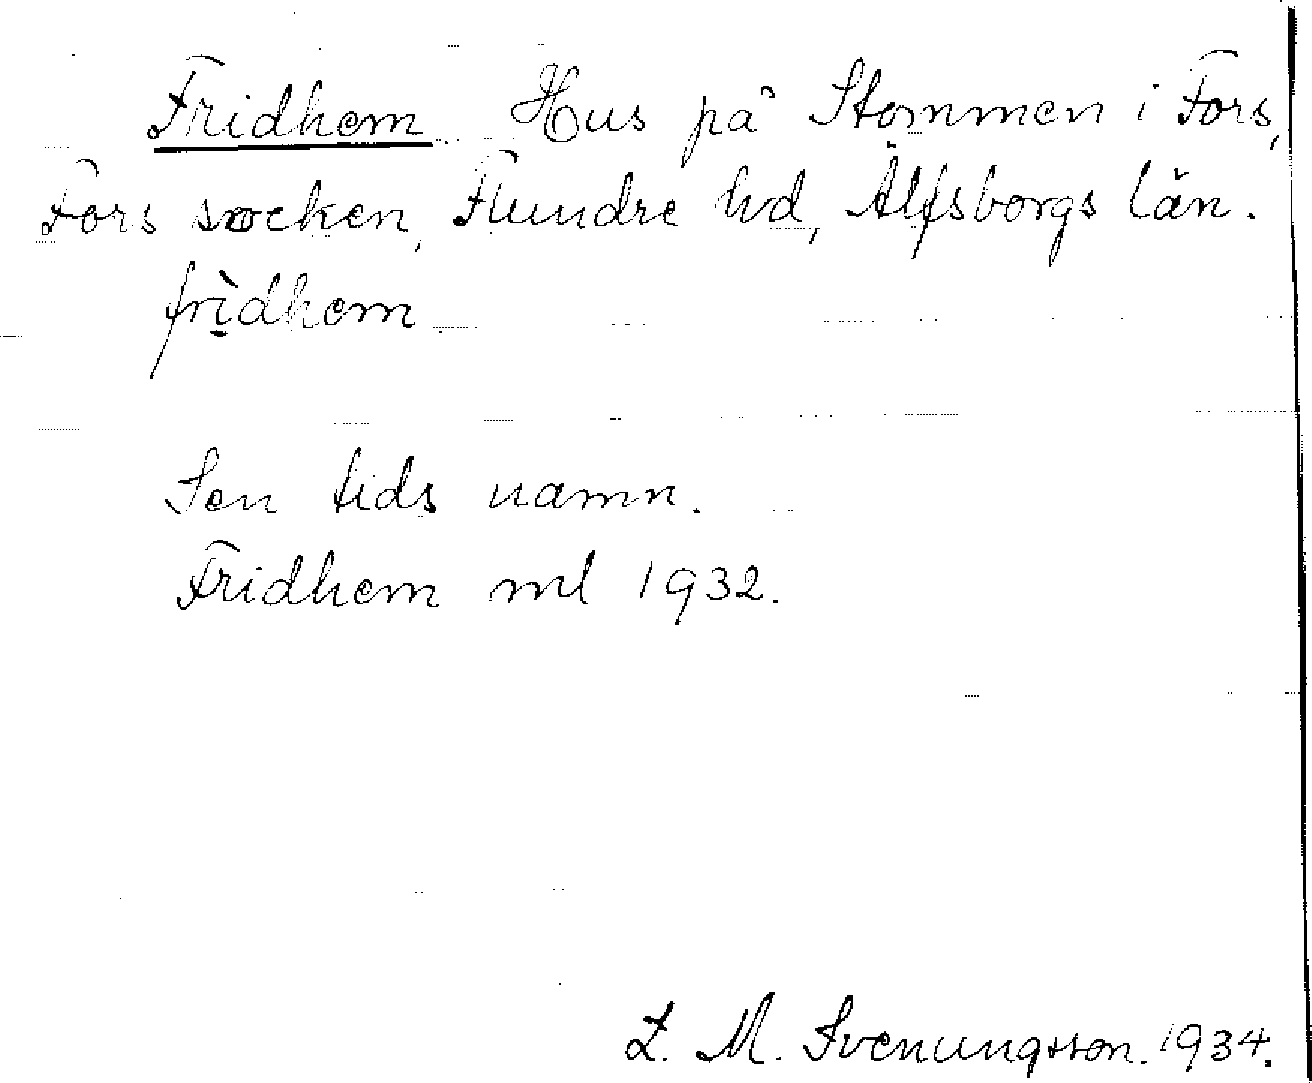 Fridhem Hus på Stommen i Fors,
Fors socken, Flundre hd, Älfsborgs län.
frìdhem
Sen tids namn.
Fridhem ml 1932.
Z. M. Svenungsson. 1934.